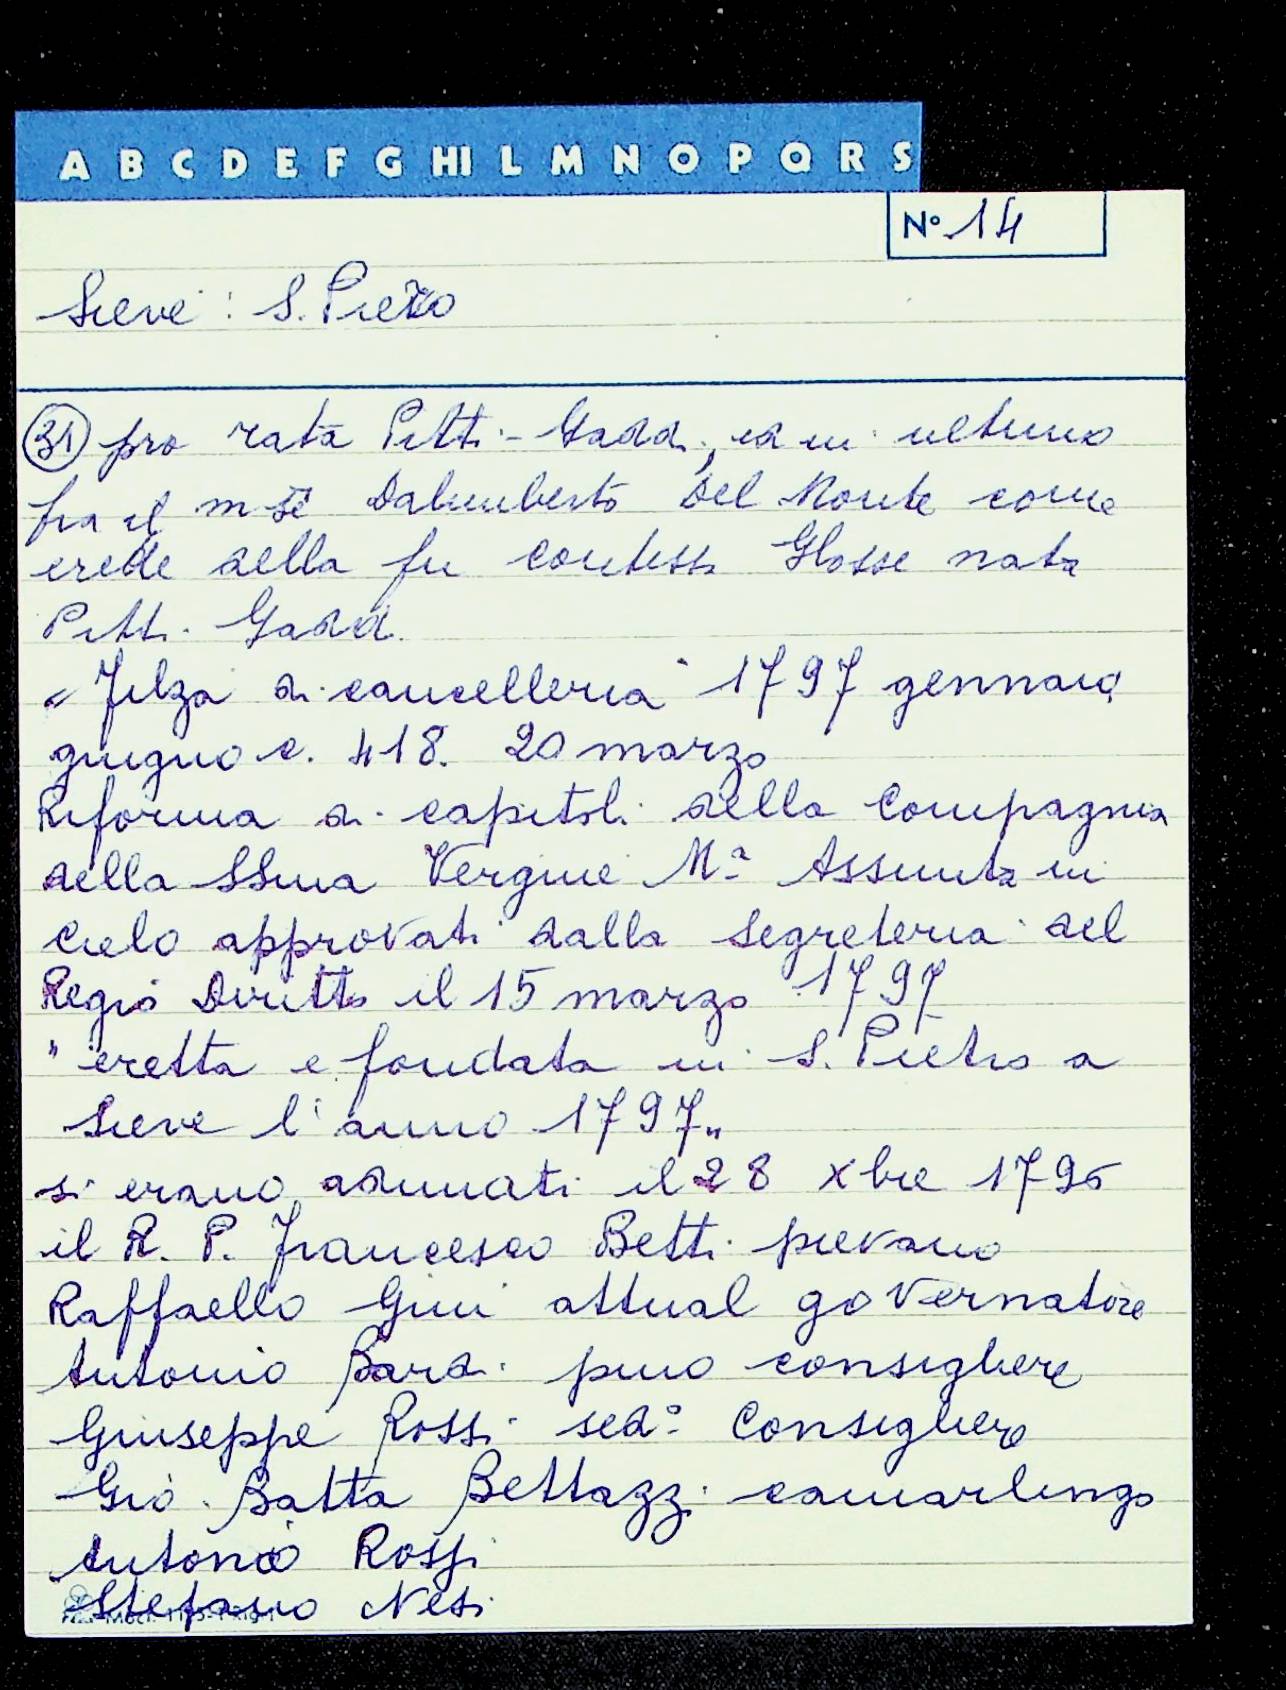 A B C D E F G HI L M N O P Q R S
N° 14
Sieve: S. Piero
31 pro rata Pitti-Gaddi, ed in ultimo
fra il m.se Dalimberto Del Monte come
erede della fu contessa Glosse nata
Pitti-Gaddi.
"Filza di cancelleria" 1797 gennaio
giugno c. 418. 20 marzo
Riforma di capitoli della Compagnia
della SSma Vergine Mª Assunta in
Cielo approvati dalla Segreteria del
Regio Diritto il 15 marzo 1797
"eretta e fondata in S. Pietro a
Sieve l'anno 1797"
si erano adunati il 28 xbre 1796
il R. P. Francesco Betti pievano
Raffaello Gini attual governatore
Antonio Bardi pmo consigliere
Giuseppe Rossi sedº Consigliere
Gio. Batta Bettazzi camarlingo
Antonio Rossi
Stefano Nesi